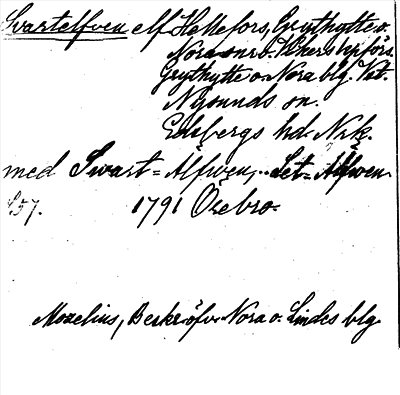 Svartelfven elf Hellefors, Grythytte o.
Nora snr o. Vikers kpförs.
Grythytte o. Nora blg. Vst.
Nysunds sn.
Edsbergs hd. Nrk.
med Swart=Älfwen, .. Let=Älfwen.
s. 57. 1791 Örebro.
Mozelius, Beskr. öfv. Nora o. Lindes blg.